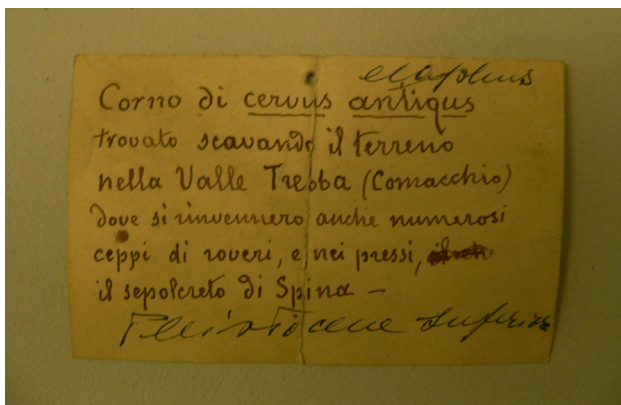 elaphus
Corno di cervus antiqus
trovato scavando il terreno
nella Valle Trebba (Comacchio)
dove si rinvennero anche numerosi
ceppi di roveri, e nei pressi,
il sepolcreto di Spina –
Pleistocene Superiore